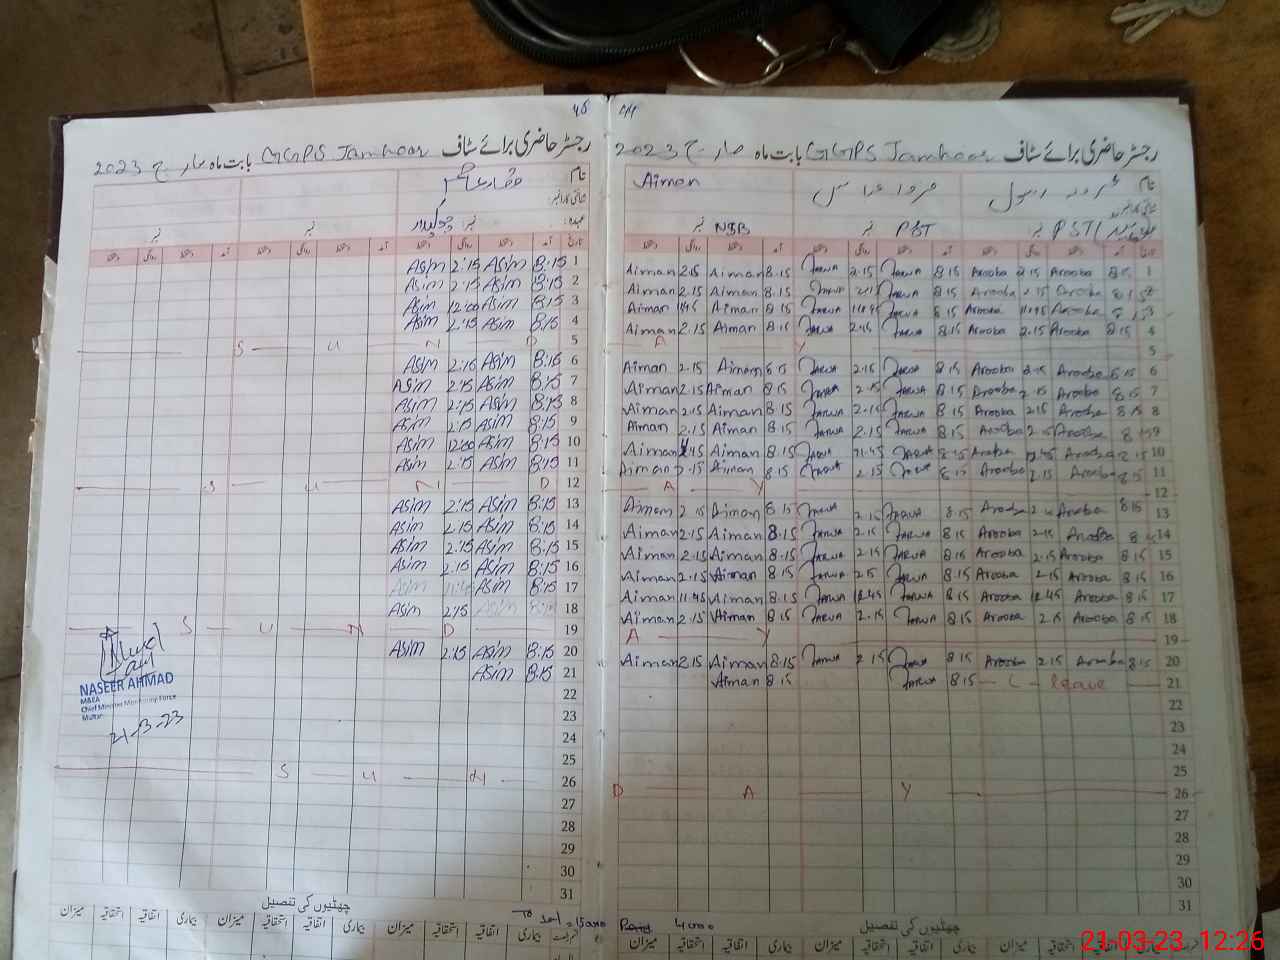 رجسٹر حاضری برائے سٹاف GGPS Jamhoor بابت ماہ مارچ 2023
نام
عہدہ: چوکیدار
تاریخ آمد دستخط روانگی دستخط
1 8:15 Asim 2:15 Asim
2 8:15 Asim 2:15 Asim
3 8:15 Asim 12:00 Asim
4 8:15 Asim 2:15 Asim
5 S U N D
6 8:15 Asim 2:15 Asim
7 8:15 Asim 2:15 Asim
8 8:15 Asim 2:15 Asim
9 8:15 Asim 2:15 Asim
10 8:15 Asim 12:00 Asim
11 8:15 Asim 2:15 Asim
12 S U N D
13 8:15 Asim 2:15 Asim
14 8:15 Asim 2:15 Asim
15 8:15 Asim 2:15 Asim
16 8:15 Asim 2:15 Asim
17 8:15 Asim Asim
18 Asim 2:15 Asim
19 S U N D
20 8:15 Asim 2:15 Asim
21 8:15 Asim
22
23
24
25
26 S U N
27
28
29
30
31
NASEER AHMAD
M&EA
Chief Minister Monitoring Force
Multan
21-3-23
چھٹیوں کی تفصیل
بیماری اتفاقیہ استحقاقیہ میزان بیماری اتفاقیہ استحقاقیہ میزان بیماری اتفاقیہ استحقاقیہ میزان
رجسٹر حاضری برائے سٹاف GGPS Jamhoor بابت ماہ مارچ 2023
نام Aiman
PST PST NSB
1 8.15 Arooba 2.15 Arooba 8.15 Farwa 2.15 Farwa 8.15 Aiman 2.15 Aiman
2 8.15 Arooba 2.15 Arooba 8.15 Farwa 2.15 Farwa 8.15 Aiman 2.15 Aiman
3 8.15 Arooba 11.45 Arooba 8.15 Farwa 11.45 Farwa 8.15 Aiman 11.45 Aiman
4 8.15 Arooba 2.15 Arooba 8.15 Farwa 2.15 Farwa 8.15 Aiman 2.15 Aiman
5 A Y
6 8.15 Arooba 2.15 Arooba 8.15 Farwa 2.15 Farwa 8.15 Aiman 2.15 Aiman
7 8.15 Arooba 2.15 Arooba 8.15 Farwa 2.15 Farwa 8.15 Aiman 2.15 Aiman
8 8.15 Arooba 2.15 Arooba 8.15 Farwa 2.15 Farwa 8.15 Aiman 2.15 Aiman
9 8.15 Arooba 2.15 Arooba 8.15 Farwa 2.15 Farwa 8.15 Aiman 2.15 Aiman
10 8.15 Arooba Arooba 8.15 Farwa 11.45 Farwa 8.15 Aiman 11.45 Aiman
11 8.15 Arooba 2.15 Arooba 8.15 Farwa 2.15 Farwa 8.15 Aiman 2.15 Aiman
12 A Y
13 8.15 Arooba Arooba 8.15 Farwa 2.15 Farwa 8.15 Aiman 2.15 Aiman
14 Arooba 2.15 Arooba 8.15 Farwa 2.15 Farwa 8.15 Aiman 2.15 Aiman
15 8.15 Arooba 2.15 Arooba 8.15 Farwa 2.15 Farwa 8.15 Aiman 2.15 Aiman
16 8.15 Arooba 2.15 Arooba 8.15 Farwa 2.15 Farwa 8.15 Aiman 2.15 Aiman
17 8.15 Arooba 12.45 Arooba 8.15 Farwa 12.45 Farwa 8.15 Aiman 11.45 Aiman
18 8.15 Arooba 2.15 Arooba 8.15 Farwa 2.15 Farwa 8.15 Aiman 2.15 Aiman
19 A Y
20 8.15 Arooba 2.15 Arooba 8.15 Farwa 2.15 Farwa 8.15 Aiman 2.15 Aiman
21 L leave 8.15 Farwa 8.15 Aiman
22
23
24
25
26 D A Y
27
28
29
30
31
Paid 4000
چھٹیوں کی تفصیل
بیماری اتفاقیہ استحقاقیہ میزان بیماری اتفاقیہ استحقاقیہ میزان بیماری اتفاقیہ استحقاقیہ میزان
21-03-23 12:26